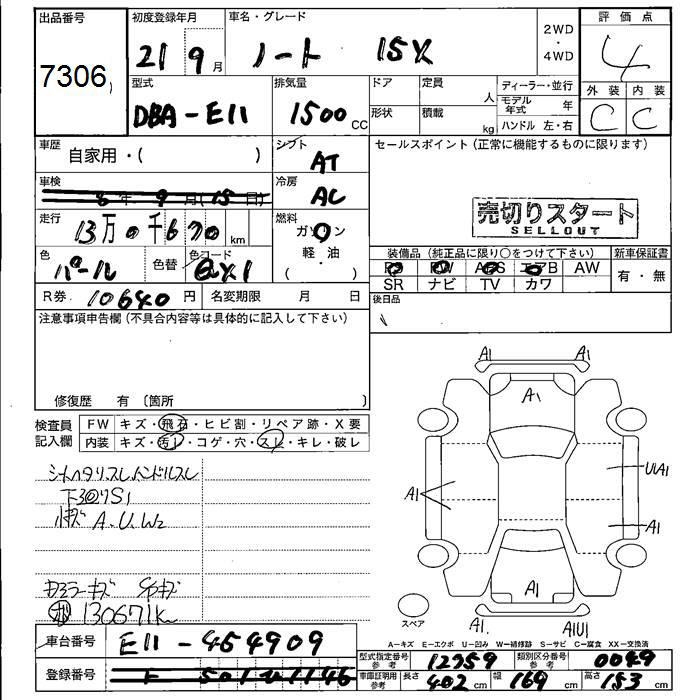 出品番号
7306
初度登録年月
21 9 月
車名・グレード
ノート 15X
2WD
・
4WD
評価点
4
外装 内装
C C
型式
DBA-E11
排気量
1500 CC
ドア
定員
人
形状
積載
kg
ディーラー・並行
モデル年式 年
ハンドル 左・右
車歴
自家用・( )
シフト
AT
車検
年 9 月(15日)
冷房
AC
走行
13万0千670 km
燃料
ガソリン
軽・油
( )
色
パール
色替
色コード
QX1
R券 10640 円
名変期限 月 日
セールスポイント(正常に機能するものに限ります)
売切りスタート
SELLOUT
装備品(純正品に限り○をつけて下さい)
新車保証書
AW
SR ナビ TV カワ
有・無
後日品
注意事項申告欄(不具合内容等は具体的に記入して下さい)
修復歴 有〔箇所 〕
検査員
記入欄
FW キズ・飛石・ヒビ割・リペア跡・X要
内装 キズ・汚レ・コゲ・穴・スレ・キレ・破レ
シートヘタリスレ,ハンドルスレ
小キズ A.U.W2
130671K
A1 A1
A1
A1
U1A1
A1
A1
A1 A1U1
スペア
A=キズ E=エクボ U=凹み W=補修跡 S=サビ C=腐食 XX=交換済
車台番号
E11-454909
登録番号
型式指定番号
参考
12959
類別区分番号
参考
0049
車庫証明用
参考
長さ 402 cm 幅 169 cm 高さ 153 cm